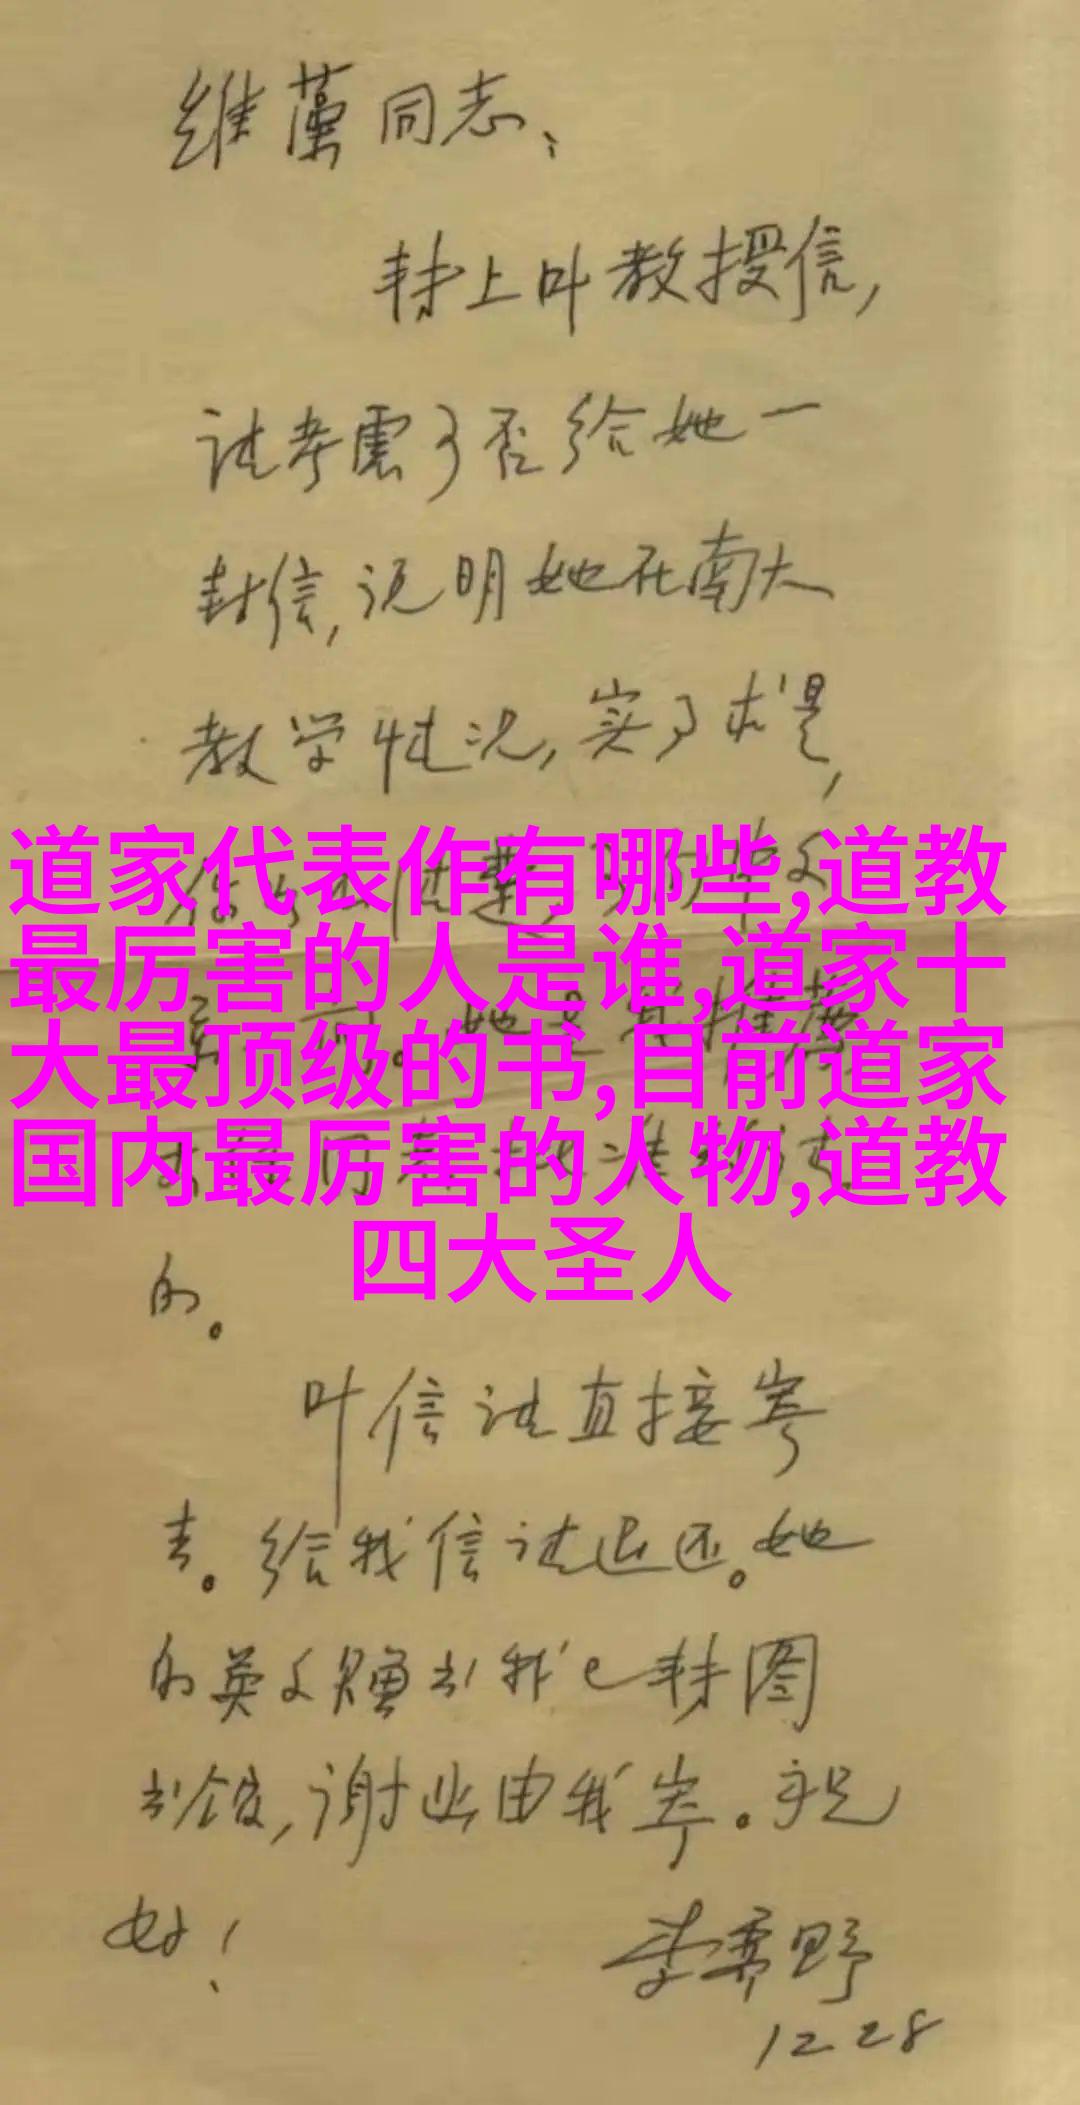 维藻同志、
转上叶教授信，
请考虑可否给她一
封信，说明她在南大
教学情况，实事求是，
道家代表作有哪些,道教
最厉害的人是谁,道家十
大最顶级的书,目前道家
国内最厉害的人物,道教
四大圣人
的。
叶信请直接寄
去。给我信请退还。她
的英文赠书我已转图
书馆，谢函由我寄。祝
好！
李霁野
12 28